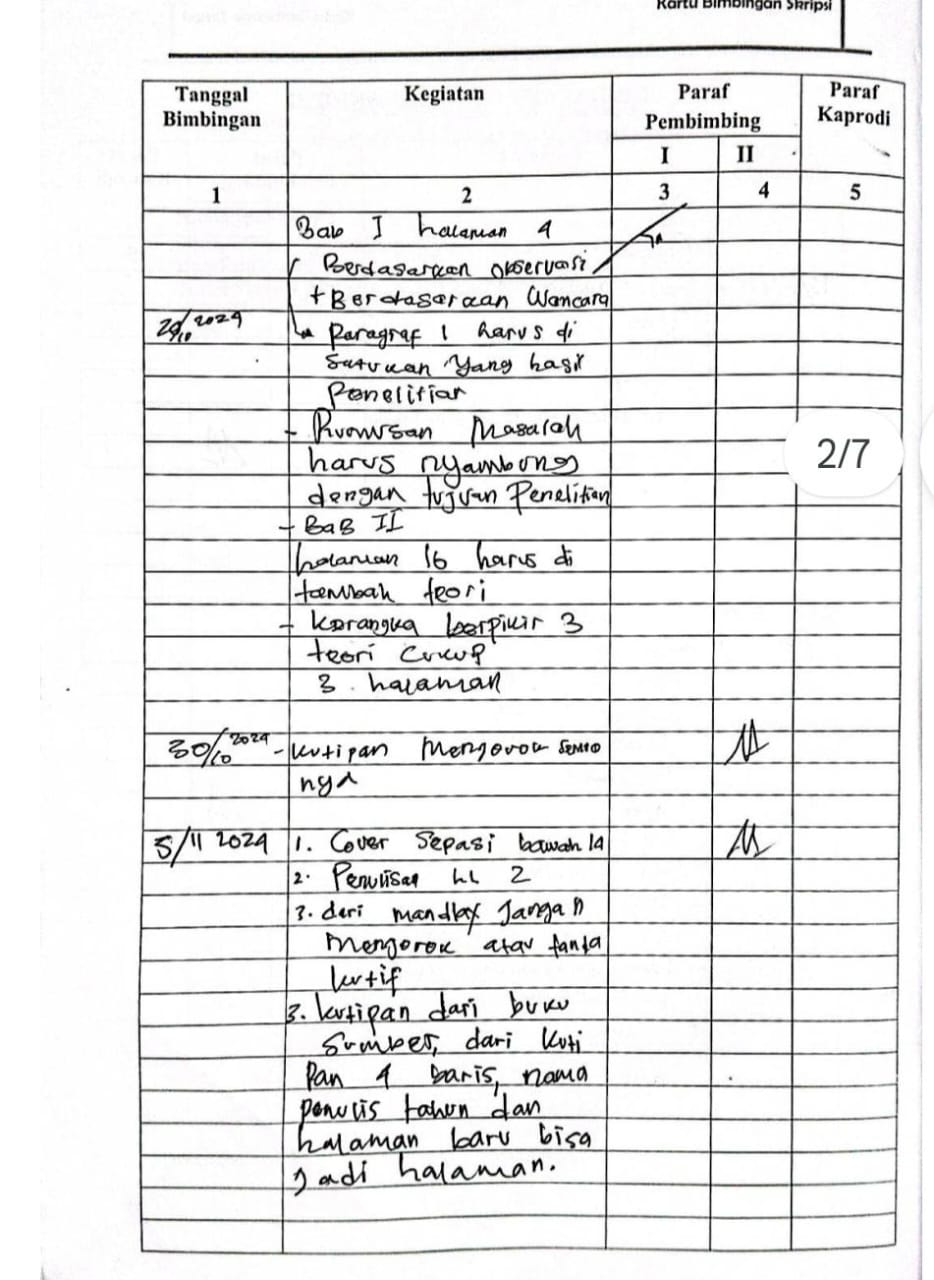 Kartu Bimbingan Skripsi
Tanggal Bimbingan
Kegiatan
Paraf Pembimbing
Paraf Kaprodi
I
II
1
2
3
4
5
Bab I halaman 4
Berdasarkan observasi
+ Berdasaraan Wancara
29/10 2024
Paragraf 1 harus di
Satukan Yang hasil
Penelitian
- Rumusan Masalah
harus nyambung
dengan tujuan Penelitian
- BaB II
halaman 16 harus di
tambah teori
- Kerangka berpikir 3
teori Cukup
3. halaman
30/10 2024
- kutipan Mengorok semua
nya
5/11 2024
1. Cover Sepasi bawah 14
2. Penulisan 2
3. dari Jangan
Mengorok atau tanda
kutif
3. kutipan dari buku
Sumber, dari Kuti
Pan 4 baris, nama
penulis tahun dan
halaman baru bisa
Jadi halaman.
2/7